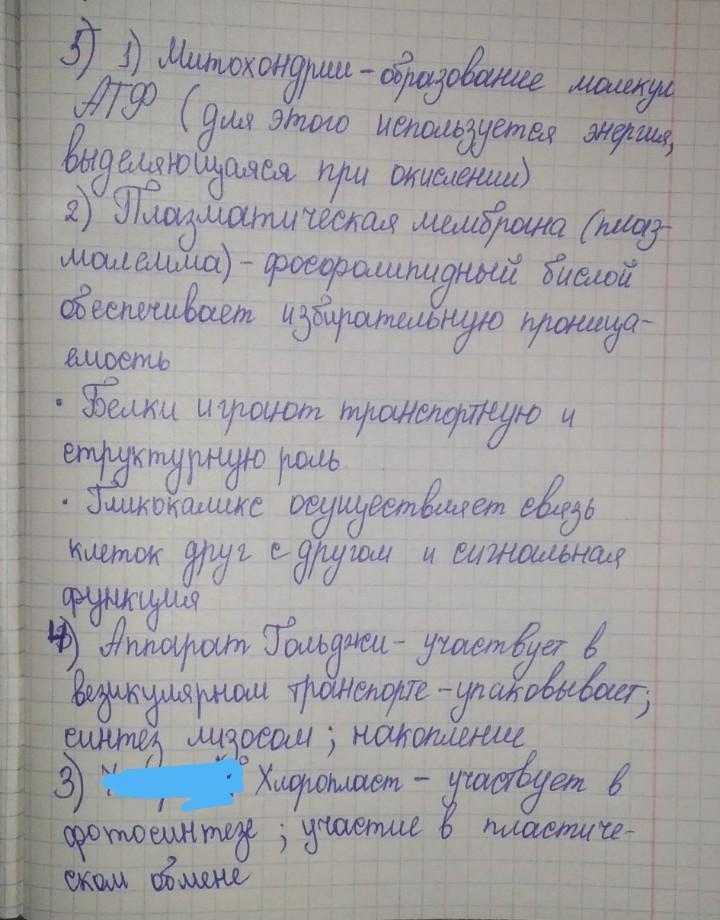 5) 1) Митохондрии - образование молекул
АТФ (для этого используется энергия,
выделяющаяся при окислении)
2) Плазматическая мембрана (плаз-
малемма) - фосфолипидный бислой
обеспечивает избирательную проница-
емость
· Белки играют транспортную и
структурную роль.
· Гликокаликс осуществляет связь
клеток друг с другом и сигнальная
функция
4) Аппарат Гольджи - участвует в
везикулярном транспорте - упаковывает;
синтез лизосом; накопление
3) Хлоропласт - участвует в
фотосинтезе; участие в пластиче-
ском обмене